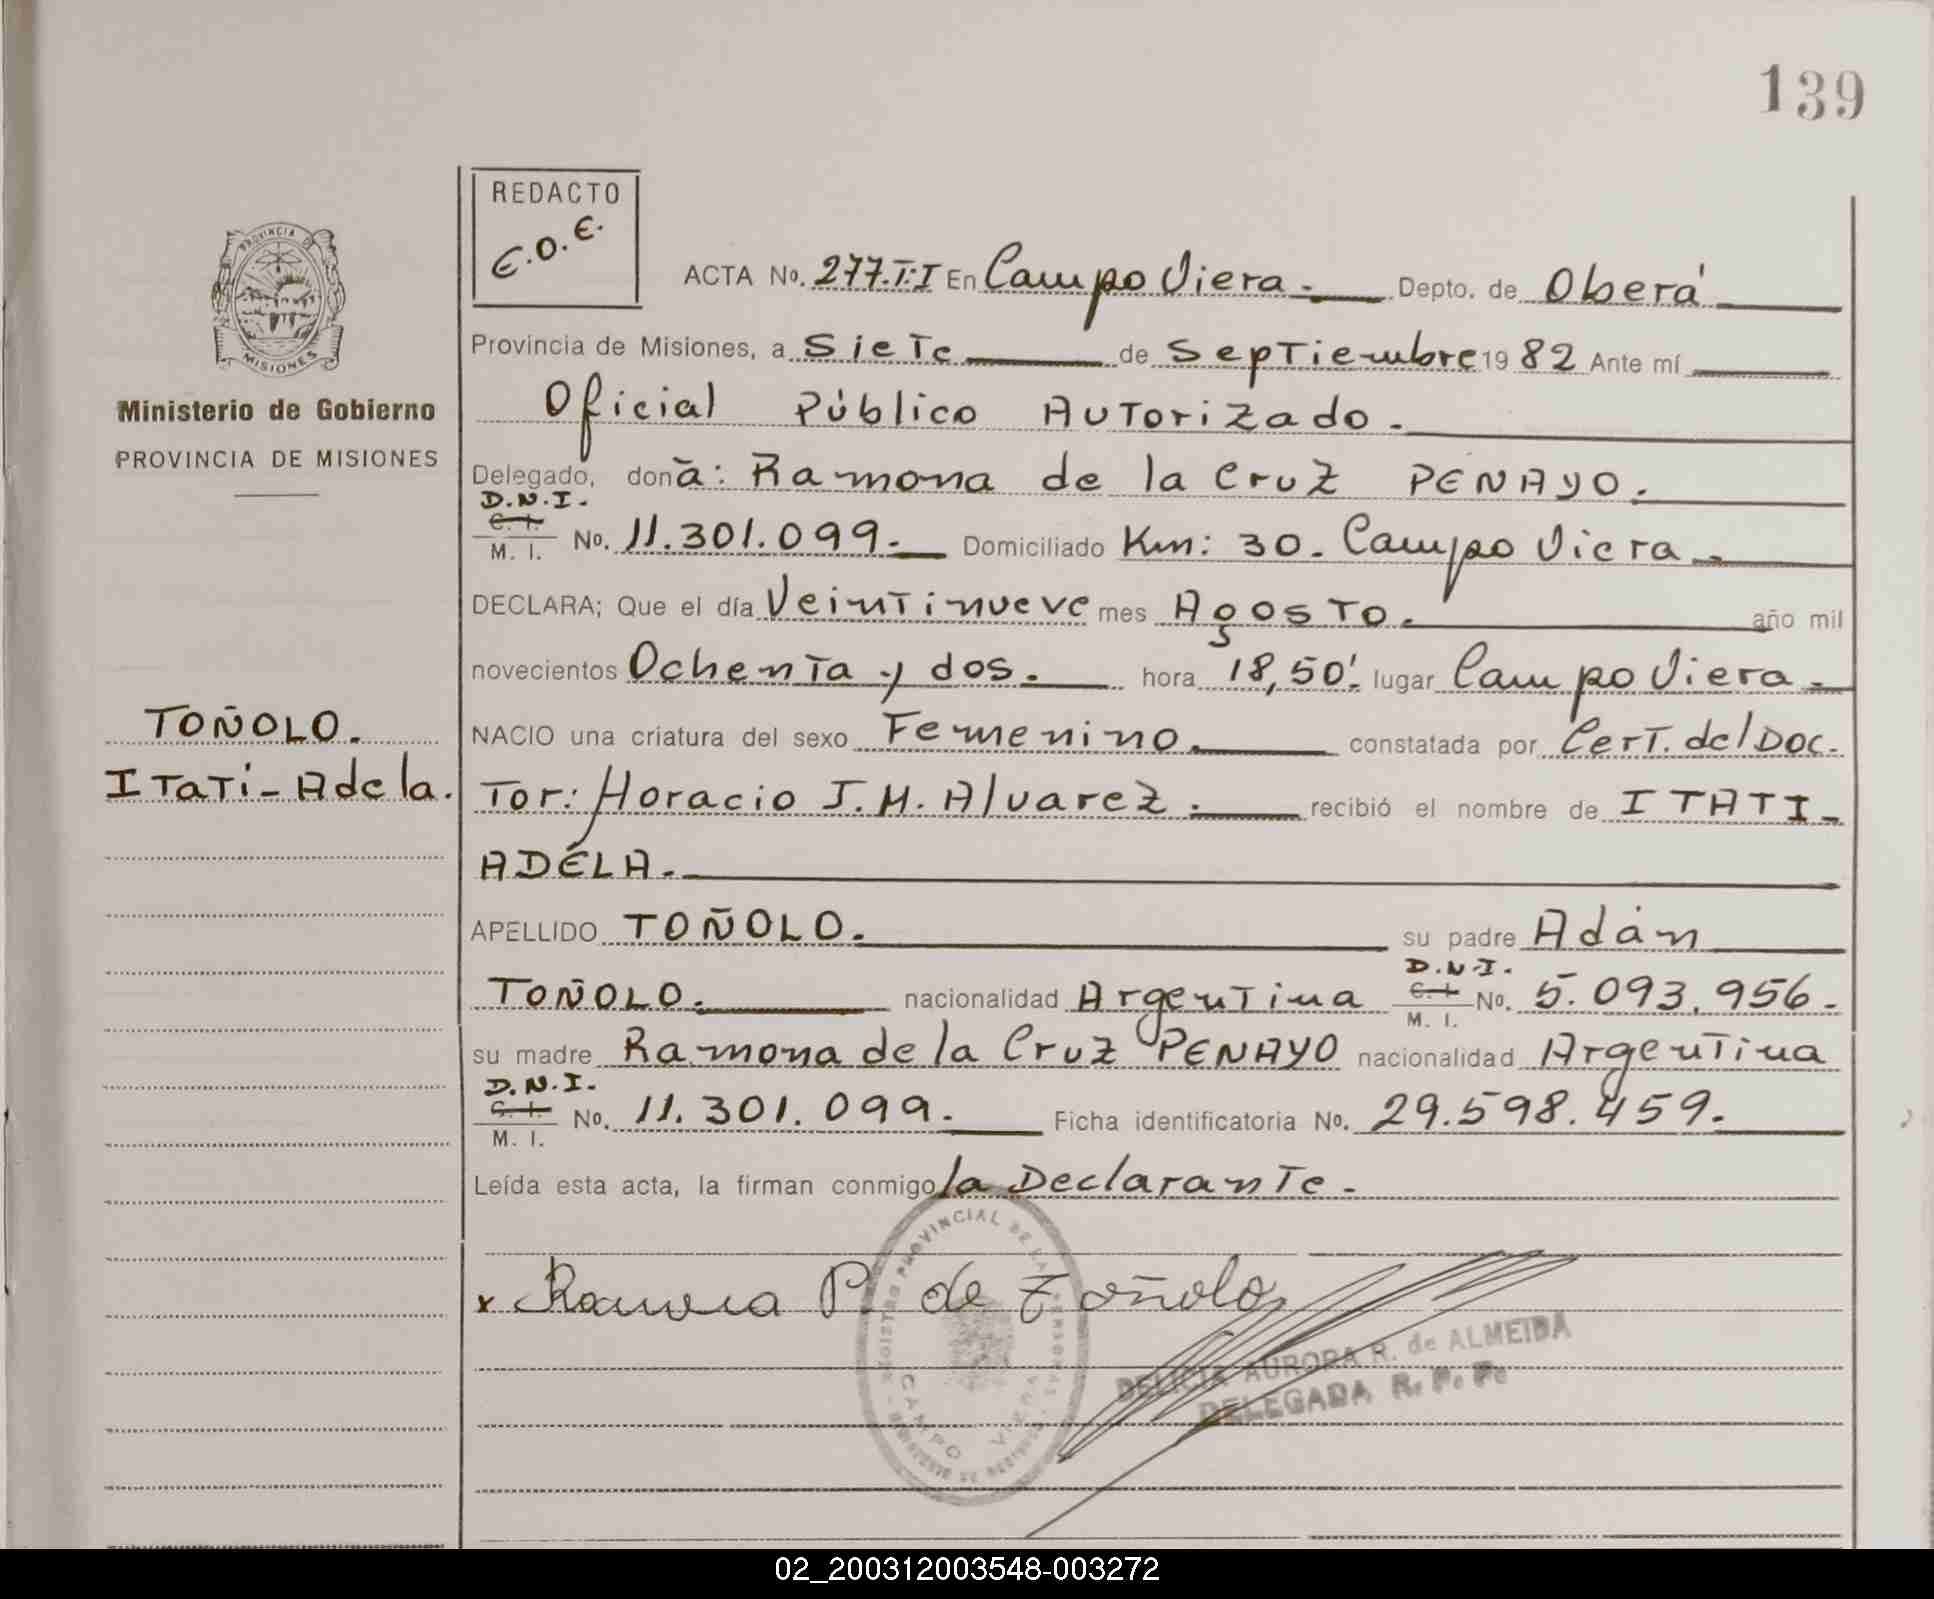 139
REDACTO
E.O.E.
PROVINCIA DE
MISIONES
ACTA No. 277.T:I En Campo Viera. Depto. de Oberá
Provincia de Misiones, a Siete de Septiembre 1982 Ante mí
Oficial Público Autorizado.
Ministerio de Gobierno
PROVINCIA DE MISIONES
Delegado, donã: Ramona de la Cruz PENAYO.
D.N.I.
C. I.
M. I. No. 11.301.099. Domiciliado Km: 30. Campo Viera.
DECLARA; Que el día Veintinueve mes Agosto. año mil
novecientos Ochenta y dos. hora 18,50'. lugar Campo Viera.
TOÑOLO.
Itatí-Adela.
NACIO una criatura del sexo Femenino. constatada por Cert. del Doc-
tor: Horacio J.M. Alvarez. recibió el nombre de ITATI-
ADELA.
APELLIDO TOÑOLO. su padre Adán
TOÑOLO. nacionalidad Argentina D.N.I. C. I. M. I. No. 5.093.956.
su madre Ramona de la Cruz PENAYO nacionalidad Argentina
D.N.I.
C. I.
M. I. No. 11.301.099. Ficha identificatoria No. 29.598.459.
Leída esta acta, la firman conmigo la Declarante.
x Ramona P. de Toñolo
REGISTRO PROVINCIAL DE LAS PERSONAS
CAMPO VIERA
DELICIA AURORA R. de ALMEIDA
DELEGADA R. P. P.
02_200312003548-003272